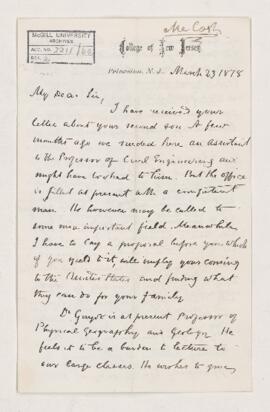 McCosh
McGILL UNIVERSITY
ARCHIVES
ACC. NO. 2211/
REF.
College of New Jersey
Princeton, N. J. March 23 1878
My Dear Sir,
I have received your
letter about your second son. A few
months ago we needed here an assistant
to the Professor of Civil Engineering and
might have looked to him. But the office
is filled at present with a competent
man. He however may be called to
some more important field. Meanwhile
I have to lay a proposal before you which
if you yield to it will imply your coming
to the United States and finding what
they can do for your family
Dr Guyot is at present Professor of
Physical Geography and Geology. He
feels it to be a burden to lecture to
our large classes. He wishes to give